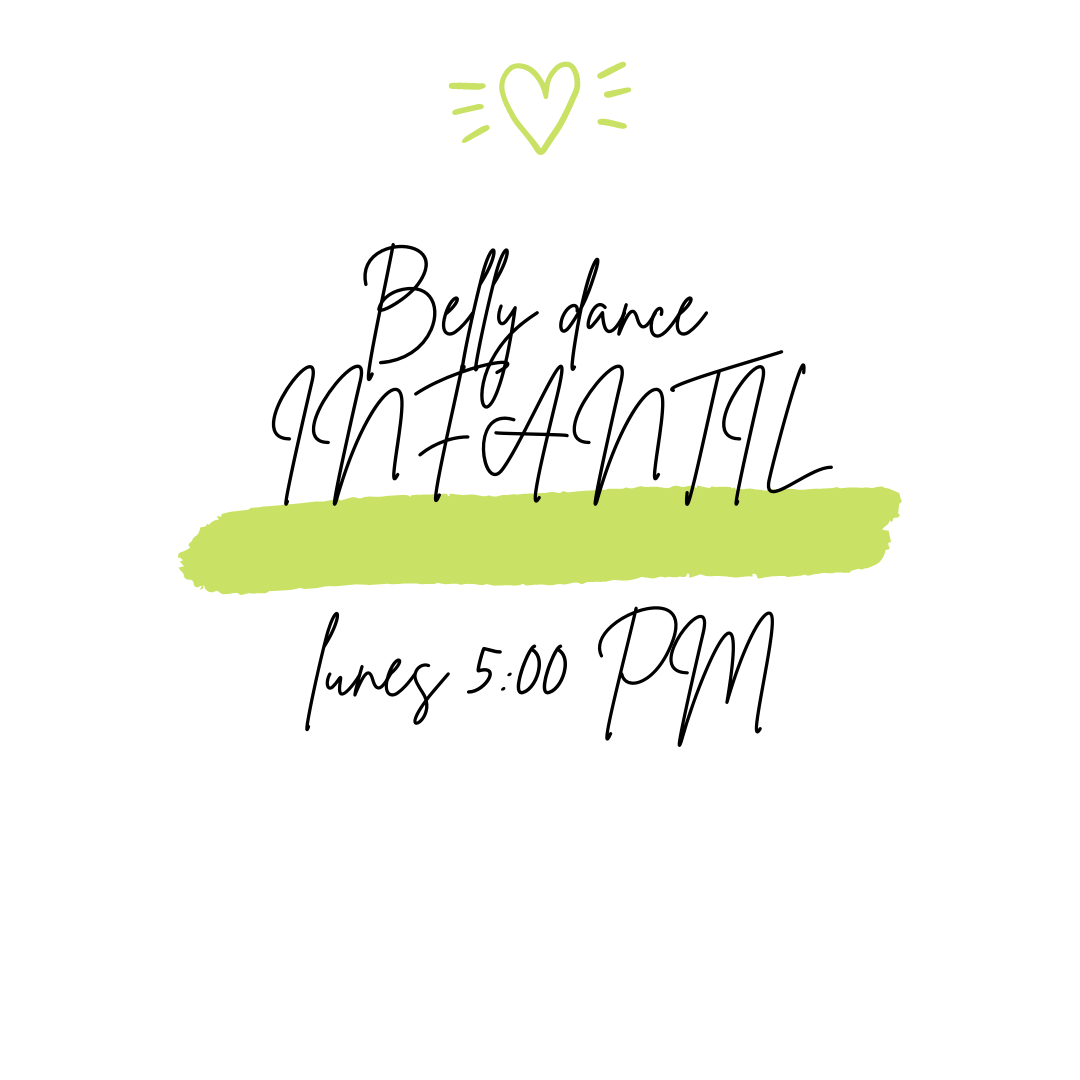 Belly dance
INFANTIL
lunes 5:00 PM